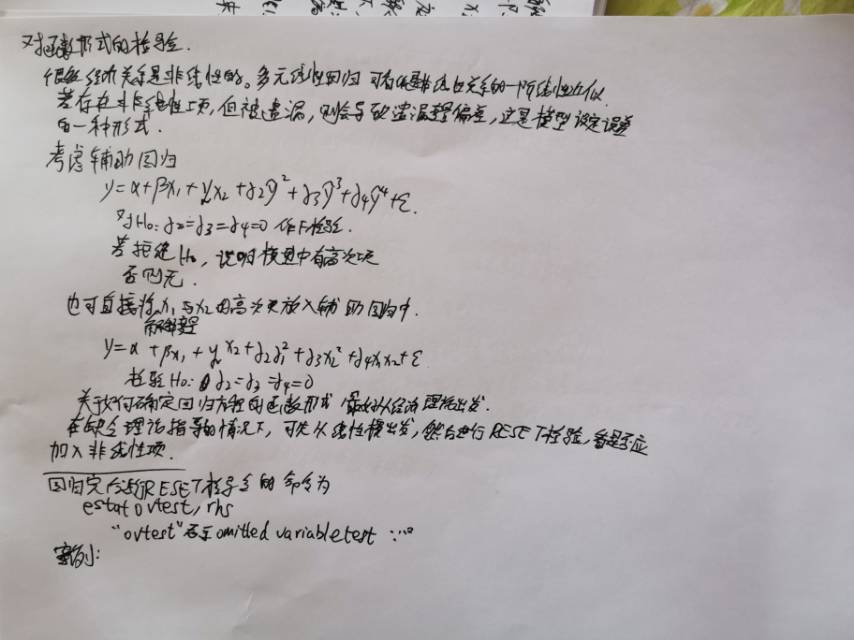 对函数形式的检验.
很多经济关系是非线性的。多元线性回归可看作是非线性关系的一阶线性近似
若存在非线性项,但被遗漏,则会导致遗漏变量偏差,这是模型设定误差
的一种形式.
考虑辅助回归
y=α+βx₁+γx₂+δ₂ŷ²+δ₃ŷ³+δ₄ŷ⁴+ε.
对H₀:δ₂=δ₃=δ₄=0 作F检验.
若拒绝H₀,说明模型中有高次项
否则无.
也可直接将x₁与x₂的高次项放入辅助回归中.
y=α+βx₁+γx₂+δ₂x₁²+δ₃x₂²+δ₄x₁x₂+ε
检验H₀:δ₂=δ₃=δ₄=0
关于如何确定回归方程的函数形式 最好从经济理论出发.
在缺乏理论指导的情况下,可先从线性模出发,然后进行RESET检验,看是否应
加入非线性项.
回归完后进行RESET检验的命令为
estat ovtest, rhs
"ovtest"表示omitted variable test
案例: